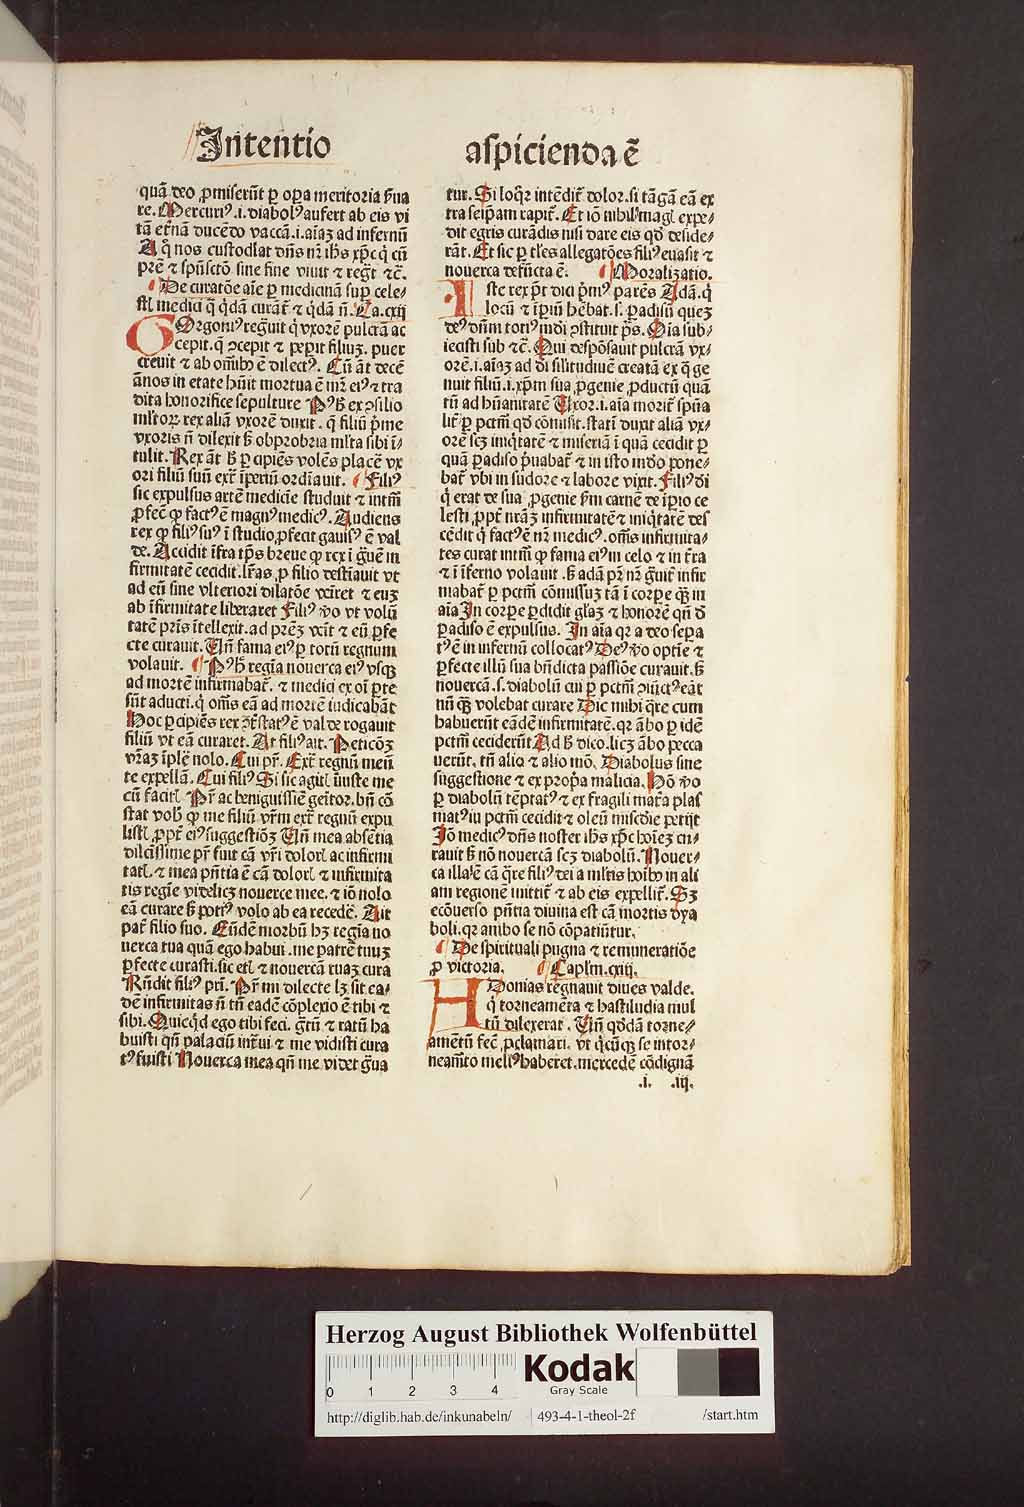 Intentio
aſpicienda ē
quā deo ꝓmiſerūt ꝑ oꝑa meritoria ẜua
re. Mercuriꝰ .i. diabolꝰ aufert ab eis vi
tā et̄nā ducēdo vaccā .i. aīaꝫ ad infernū
A q̊ nos cuſtodiat dn̄s nr̄ ih̄s xp̄c q̇ cū
pr̄e ⁊ ſpūſctō ſine fine viuit ⁊ regt̄ ⁊c̄.
De curatōe aīe ꝑ medicinā ſuꝑ cele-
ſtl medici q̄ q̄dā curāt̄ ⁊ q̄dā n̄. Ca. cxij
GOrgoniꝰ regͣuit q̇ vxorē pulcrā ac
cepit. q̄ ꝯcepit ⁊ peperit filiuꝫ. puer
creuit ⁊ ab oībꝰ ē dilectꝰ. Cū āt decē
ānos in etate hūit mortua ē mr̄ eiꝰ ⁊ tra
dita honorifice ſepulture Pꝰ ẜ ex ꝯſilio
ml̄torꝝ rex aliā vxorē duxit. q̄ filiū p̄me
vxoris n̄ dilexit ẜ obprobria ml̄ta ſibi ī-
tulit. Rex āt ẜ ꝑcipiēs volēs placē vx
ori filiū ſuū ext̄ īperiū ordīauit. Filiꝰ
ſic expulſus artē medicīe ſtuduit ⁊ intm̄
ꝓfec̄ ꝙ factꝰ ē magnꝰ medicꝰ. Audiens
rex ꝙ filiꝰ ſuꝰ ī ſtudio ꝓfecit gauiſꝰ ē val
de. Accidit īfra tp̄s breue ꝙ rex ī gͣuē in
firmitatē cecidit. lr̄as ꝓ filio deſtīauit vt
ad eū ſine vlteriori dilatōe veīret ⁊ euꝫ
ab īfirmitate liberaret Filiꝰ v̊o vt volū
tatē pr̄is ītellexit. ad pr̄eꝫ veīt ⁊ eū ꝑfe
cte curauit. Vn̄ fama eiꝰ ꝑ totū regnum
volauit. Pꝰ h̄ regīa nouerca eiꝰ vſqꝫ
ad mortē infirmabat̄. ⁊ medici ex oī ꝑte
ſūt aducti. q̇ om̄s eā ad mortē iudicabāt
Hoc ꝑcipiēs rex ꝯt̄ſtatꝰ ē valde rogauit
filiū vt eā curaret. At filiꝰ ait. Peticōꝫ
vr̄aꝫ īplē nolo. Cui pr̄. Ext̄ regnū meū
te expellā. Cui filiꝰ Si ſic agitl īiuſte me
cū facitl Pr̄ ac benigniſſīe genitor. bn̄ cō
ſtat vob̄ ꝙ me filiū vr̄m ext̄ regnū expu
liſtl ꝓpt̄ eiꝰ ſuggeſtiōꝫ Vn̄ mea abſentia
dilciſſime pr̄ fuit cā vr̄i dolorl ac infirmi
tatl. ⁊ mea pn̄tia ē cā dolorl ⁊ infirmita
tis regīe videlicꝫ nouerce mee. ⁊ iō nolo
eā curare ẜ potiꝰ volo ab ea recedē. Ait
pat̄ filio ſuo. Eūdē morbū hꝫ regīa no
uerca tua quā ego habui. me patrē tuuꝫ
ꝑfecte curaſti. ſic etl ⁊ nouercā tuaꝫ cura
Rn̄dit filiꝰ pr̄i. Pr̄ mi dilecte lꝫ ſit ea-
dē infirmitas n̄ tn̄ eadē cōplexio ē tibi ⁊
ſibi. Quicq̇d ego tibi feci. gt̄ū ⁊ ratū ha
buiſti qn̄ palaciū int̄ui ⁊ me vidiſti cura
tꝰ fuiſti Nouerca mea qn̄ me videt gͣua
tur. Si loq̄r intēdit̄ dolor. ſi tāgā eā ex
tra ſeip̄am rapit̄. Et iō nihil magl expe-
dit egris curādis niſi dare eis qd̓ deſide-
rāt. Et ſic ꝑ tl̄es allegatōes filiꝰ euaſit ⁊
nouerca defūcta ē. Moralizatio.
Iſte rex pt̄ dici p̄mꝰ parēs Adā. q̇
locū ⁊ īꝑiū hēbat .ſ. ꝑadiſū queꝫ
deꝰ dn̄m totiꝰ mūdi ꝯſtituit ps̄. Oīa ſub-
ieciſti ſub ⁊c̄. Qui deſpōſauit pulcrā vx-
orē .i. aīaꝫ ad di ſilitudiuē creatā ex q̄ ge
nuit filiū .i. xp̄m ſua ꝓgenie ꝓductū quā
tū ad hūanitatē Vxor .i. aīa morit̄ ſpūa
lit̄ ꝑ pctm̄ qd̓ cōmiſit. ſtatī duxit aliā vx-
orē ſcꝫ iniq̇tatē ⁊ miſeriā ī quā cecidit ꝑ
quā ꝑadiſo p̄uabat̄ ⁊ in iſto mūdo pone-
bat̄ vbi in ſudore ⁊ labore vixit. Filiꝰ di
q̇ erat de ſua ꝓgenie ẜm carnē de īꝑio ce
leſti ꝓpt̄ nr̄aꝫ infirmitatē ⁊ iniq̇tatē deſ
cēdit q̇ factꝰ ē nr̄ medicꝰ. om̄s infirmita-
tes curat intm̄ ꝙ fama eiꝰ in celo ⁊ in t̄ra
⁊ ī īferno volauit. ẜ adā pr̄ nr̄ gͣuit̄ infir
mabat̄ ꝑ pctm̄ cōmiſſuꝫ tā ī corpe qͣꝫ in
aīa In corpe ꝑdidit gl̄aꝫ ⁊ honorē qn̄ d̓
ꝑadiſo ē expulſus. In aīa qꝛ a deo ſepa
tꝰ ē in infernū collocatꝰ Deꝰ v̊o optīe ⁊
ꝑfecte illū ſua bn̄dicta paſſiōe curauit. ẜ
nouercā .ſ. diabolū cui ꝑ pctm̄ ꝯiūctꝰ eāt
nūqͣꝫ volebat curare Dic mihi q̄re cum
habuerūt eādē infirmitatē. qꝛ ābo ꝑ idē
pctm̄ ceciderūt Ad ẜ dico. licꝫ ābo pecca
uerūt. tn̄ alio ⁊ alio mō. Diabolus ſine
ſuggeſtione ⁊ ex ꝓpͣa malicia. Hō v̊o
ꝑ diabolū tēptatꝰ ⁊ ex fragili mat̄a plaſ
matꝰ in pctm̄ cecidit ⁊ oleū miſcd̓ie petijt
Iō medicꝰ dn̄s noſter ih̄s xp̄c hoīeꝫ cu-
rauit ẜ nō nouercā ſcꝫ diabolū. Nouer-
ca illa ē cā q̄re filiꝰ dei a ml̄tis hoībꝰ in ali
am regionē mittit̄ ⁊ ab eis expellit̄. Sꝫ
ecōuerſo pn̄tia diuina eſt cā mortis dya
boli. qꝛ ambo ſe nō cōpatiūtur.
De ſpirituali pugna ⁊ remuneratiōe
ꝓ victoria. Caplm̄. cxiij.
HDonias regnauit diues valde.
q̇ torneamēta ⁊ haſtiludia mul
tū dilexerat. Vn̄ qd̓dā torne-
amētū fec̄ ꝓclamari. vt q̇cūqꝫ ſe in tor-
neamēto meliꝰ haberet. mercedē cōdignā
.i. .iij.
Herzog August Bibliothek Wolfenbüttel
0 1 2 3 4
Kodak
Gray Scale
http://diglib.hab.de/inkunabeln/ 493-4-1-theol-2f /start.htm